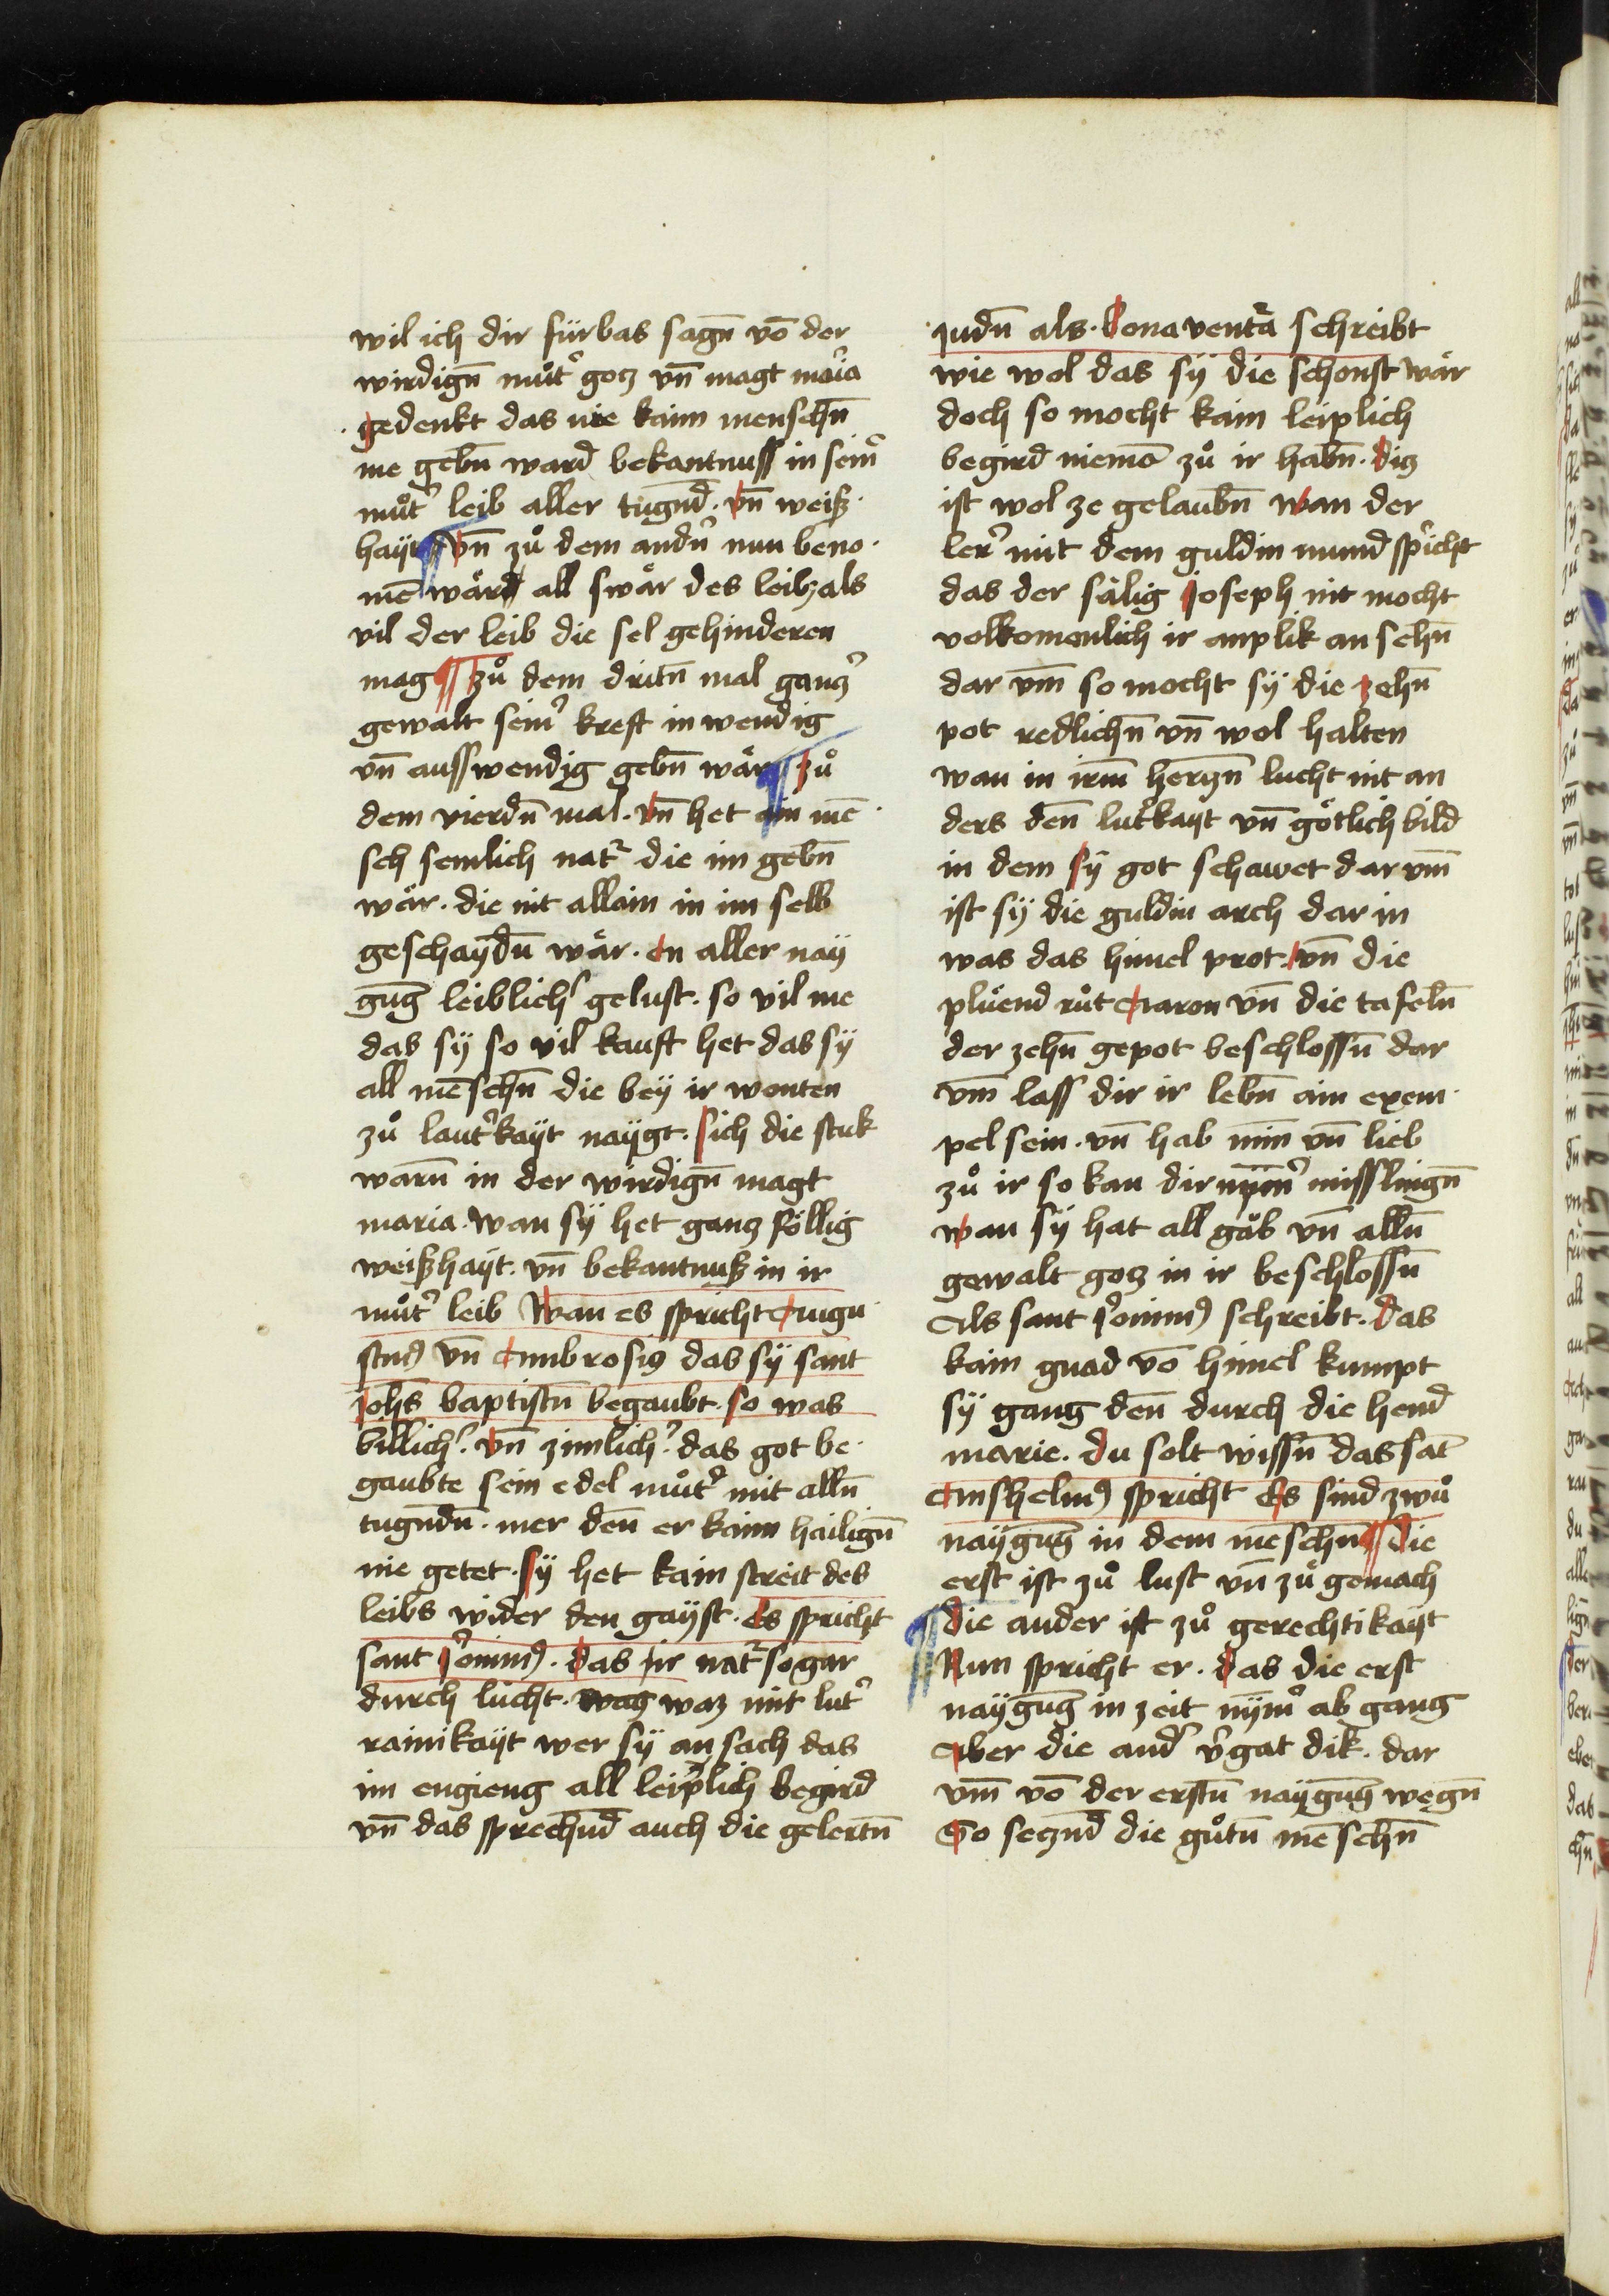 wil ich dir fürbas sagn̄ vō der
wirdign̄ můtˀ gotz vn̄ magt maˀia
gedenkt das nie kaim menschn̄
me gebn̄ ward bekantnuss in seinˀ
můtˀ leib aller tugnd̄ · vn̄ weiß·
hayt ¶ vn̄ zů dem andn̄ nun beno·
mē wärd all swär des leibz als
vil der leib die sel gehinderen
mag ¶ zů dem dritn̄ mal gantzˀ
gewalt seinˀ kreft inwendig
vn̄ ausswendig gebn̄ wär ¶ zů
dem vierdn̄ mal · vn̄ het ain mē·
sch semlich natˀ die im gebn̄
wär · die nit allain in im selb
geschaydn̄ wär · in aller nay
gūg leiblichˀ gelust · so vil me
das sy so vil kauft het das sy
all mēschn̄ die bey ir wonten
zů lautˀkayt naygt · sich die stuk
warn̄ in der wirdign̄ magt
maria · wan sy het gantz föllig
weißhayt · vn̄ bekantnuß in ir
můtˀ leib Wan es spricht Augu·
stin9 vn̄ Ambrosi9 das sy sant
Joh̄s baptistn̄ begaubt · so was
billichˀ · vn̄ zimlichˀ · das got be·
gaubte sein edel můtˀ mit alln̄
tugndn̄ · mer den̄ er kaim hailign̄
nie getet · sy het kain streit des
leibs wider den gayst · Es spricht
sant Jˀonim9 · das ir natˀ so gar
durch lücht · waz mit lutˀ
rainikayt wer sy an sach das
im engieng all leiplich begird
vn̄ das sprechnd̄ auch die gelertn̄
Judn̄ als · Bonaventˀa schreibt
wie wol das sy die schonst wär
doch so mocht kain leiplich
begird niemā zů ir habn̄ · ditz
ist wol ze gelaubn̄ wan der
lerˀ mit dem guldin mund spˀicht
das der sälig Joseph nit mocht
volkomenlich ir anplik an sehn̄
dar vm̄ so mocht sy die zehn̄
pot redlichn̄ vn̄ wol halten
wan in irm̄ hertzn̄ lucht nit an
ders den̄ lutˀkayt vn̄ götlich bild
in dem sy got schawet dar vm̄
ist sy die guldin arch dar in
was das himel prot · vn̄ die
plüend růt Aaron vn̄ die tafeln̄
der zehn̄ gepot beschlossn̄ dar
vm̄ lass dir ir lebn̄ ain exem·
pel sein · vn̄ hab min̄ vn̄ lieb
zů ir so kan dir nym̄ˀ misslingn̄
wan sy hat all gåb vn̄ alln̄
gewalt gotz in ir beschlossn̄
Als sant Jˀonim9 schreibt · Das
kain gnad vō himel kumpt
sy gang den̄ durch die hend
marie · du solt wissn̄ das sāt
Anshelm9 spricht Es sind zwů
naygūg in dem meschn̄ ¶ die
erst ist zů lust vn̄ zů gemach
¶ die ander ist zů gerechtikayt
Nun spricht er · das die erst
naygūg in zeit nȳmˀ ab gang
Aber die andˀ vˀgat dik · dar
vm̄ vō der erstn̄ naygūg wegn̄
So setznd̄ die gůtn̄ mēschn̄